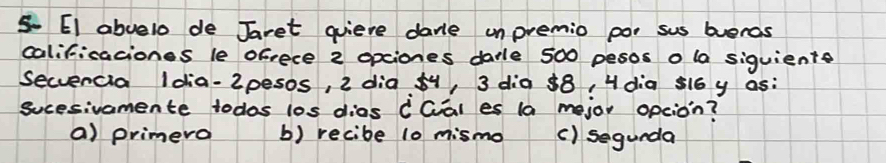 5- El abuelo de Jaret quiere darle un premio por sus buenas
calificaciones le ofrece 2 opciones darle 500 pesos o la siguiente
secuencia 1 dia - 2 pesos, 2 dia $4, 3 dia $8, 4 dia $16 y asi
sucesivamente todos los dias ¿Cuál es la mejor opción?
a) primera b) recibe lo mismo c) segunda